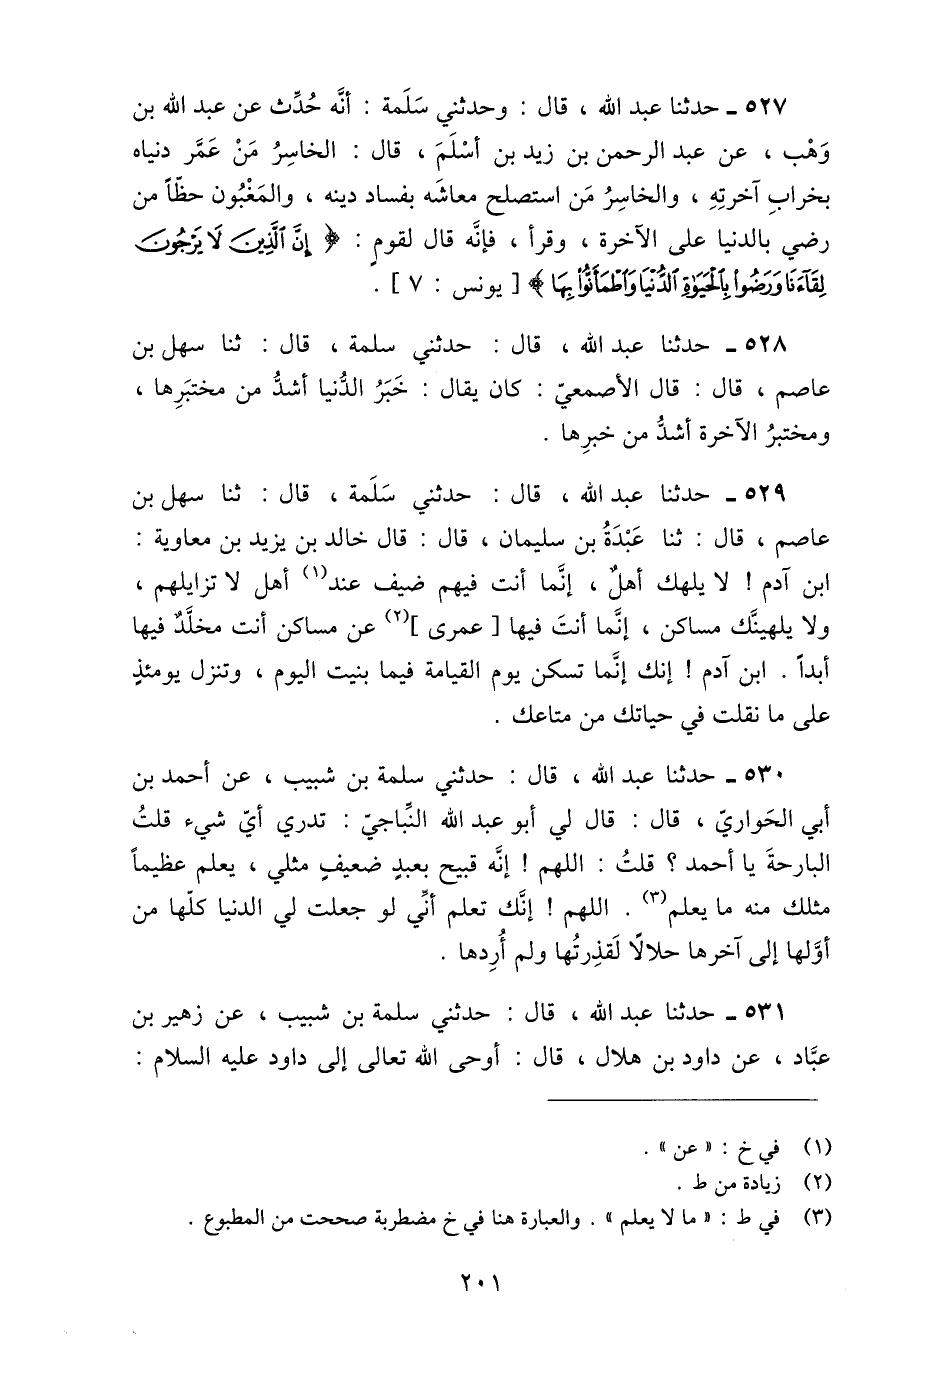 ٥٢٧ ـ حدثنا عبد الله ، قال : وحدثني سَلَمة : أنَّه حُدِّث عن عبد الله بن
وَهْب ، عن عبد الرحمن بن زيد بن أسْلَمَ ، قال : الخاسِرُ مَنْ عَمَّر دنياه
بخرابِ آخرتِهِ ، والخاسِرُ مَن استصلح معاشَه بفساد دينه ، والمَغْبُون حظّاً من
رضي بالدنيا على الآخرة ، وقرأ ، فإنَّه قال لقومٍ : ﴿ إِنَّ ٱلَّذِينَ لَا يَرْجُونَ
لِقَآءَنَا وَرَضُوا۟ بِٱلْحَيَوٰةِ ٱلدُّنْيَا وَٱطْمَأَنُّوا۟ بِهَا ﴾ [ يونس : ٧ ] .
٥٢٨ ـ حدثنا عبد الله ، قال : حدثني سلمة ، قال : ثنا سهل بن
عاصم ، قال : قال الأصمعيّ : كان يقال : خَبَرُ الدُّنيا أشدُّ من مختبَرِها ،
ومختبرُ الآخرة أشدُّ من خبرِها .
٥٢٩ ـ حدثنا عبد الله ، قال : حدثني سَلَمة ، قال : ثنا سهل بن
عاصم ، قال : ثنا عَبْدَةُ بن سليمان ، قال : قال خالد بن يزيد بن معاوية :
ابن آدم ! لا يلهك أهلٌ ، إنَّما أنت فيهم ضيف عند(١) أهل لا تزايلهم ،
ولا يلهينَّك مساكن ، إنَّما أنتَ فيها [ عمرى ](٢) عن مساكن أنت مخلَّدٌ فيها
أبداً . ابن آدم ! إنك إنَّما تسكن يوم القيامة فيما بنيت اليوم ، وتنزل يومئذٍ
على ما نقلت في حياتك من متاعك .
٥٣٠ ـ حدثنا عبد الله ، قال : حدثني سلمة بن شبيب ، عن أحمد بن
أبي الحَواريّ ، قال : قال لي أبو عبد الله النِّباجيّ : تدري أيّ شيء قلتُ
البارحةَ يا أحمد ؟ قلتُ : اللهم ! إنَّه قبيح بعبدٍ ضعيفٍ مثلي ، يعلم عظيماً
مثلك منه ما يعلم(٣) . اللهم ! إنَّك تعلم أنّي لو جعلت لي الدنيا كلّها من
أوَّلها إلى آخرها حلالًا لَقذِرتُها ولم أُرِدها .
٥٣١ ـ حدثنا عبد الله ، قال : حدثني سلمة بن شبيب ، عن زهير بن
عبَّاد ، عن داود بن هلال ، قال : أوحى الله تعالى إلى داود عليه السلام :
(١) في خ : « عن » .
(٢) زيادة من ط .
(٣) في ط : « ما لا يعلم » . والعبارة هنا في خ مضطربة صححت من المطبوع .
٢٠١